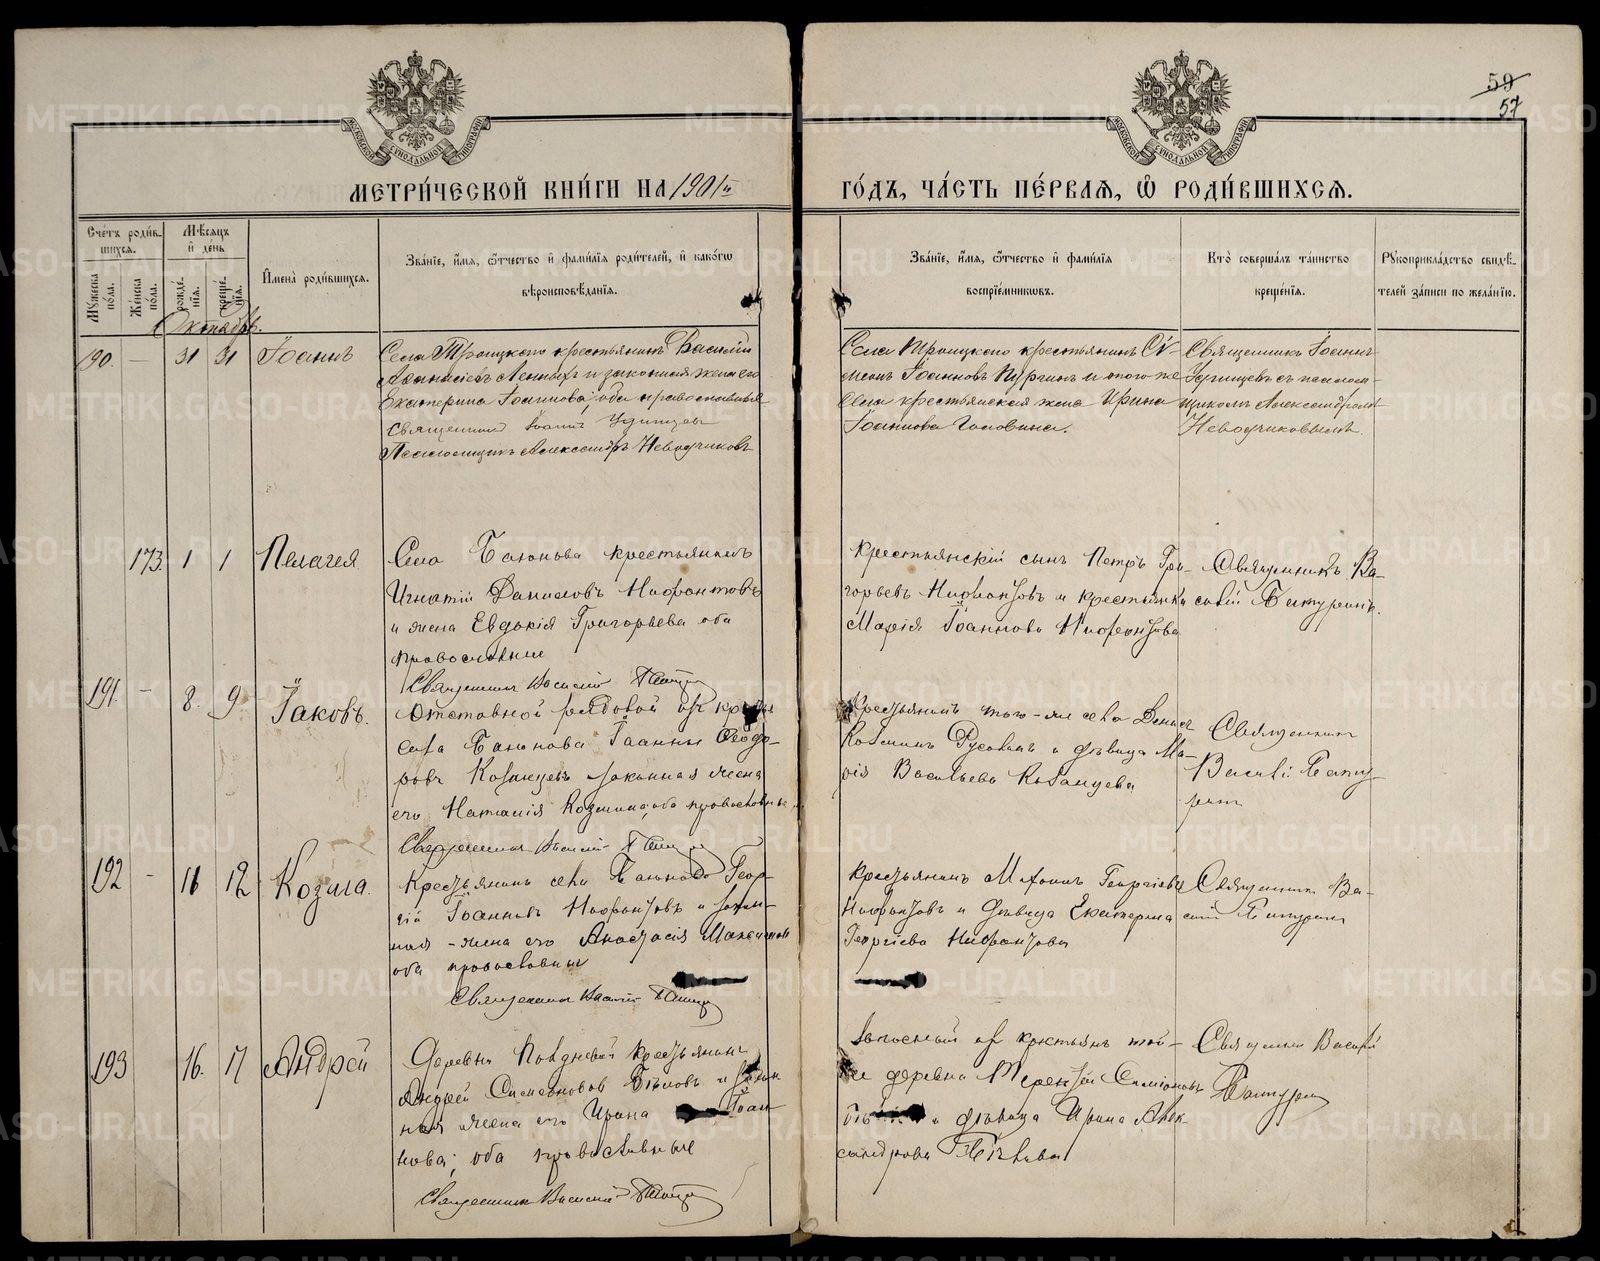 59
57
МОСКОВСКОЙ СУНОДАЛЬНОЙ ТИПОГРАФІИ
МОСКОВСКОЙ СУНОДАЛЬНОЙ ТИПОГРАФІИ
МЕТРИ́ЧЕСКОЙ КНИ́ГИ НА 1901й
ГО́ДЪ, ЧА́СТЬ ПЕ́РВАЯ, Ѿ РОДИ́ВШИХСЯ.
Сче́тъ роди́в-
шихся.
Мꙋжеска по́ла.
Же́нска по́ла.
Мѣ́сяцъ
и҆ де́нь
рожде́нїя.
креще́нїя.
И҆мена̀ роди́вшихся.
Зва́нїе, и҆́мя, ѻ҆́тчество и҆ фами́лїя роди́телей, и҆ како́гѡ
вѣроисповѣ́данїя.
Зва́нїе, и҆́мя, ѻ҆́тчество и҆ фами́лїя
воспрїе́мникѡвъ.
Кто̀ соверша́лъ та́инство
креще́нїя.
Рꙋкоприкла́дство свидѣ́-
телей за́писи по жела́нїю.
Октябрь.
190. — 31 31 Іоаннъ
Села Троицкаго крестьянинъ Василій
Аѳанасіевъ и законная жена его
Екатерина Іоаннова, оба православные
Священникъ Іоаннъ
Псаломщикъ Александръ Неводчиковъ
Села Троицкаго крестьянинъ Сѵ-
меонъ Іоанновъ Пургинъ и того же
села крестьянская жена Ирина
Іоаннова Головина.
Священникъ Іоаннъ
съ псалом-
щикомъ Александромъ
Неводчиковымъ
173. 1 1 Пелагея
Села Баюнова крестьянинъ
Игнатій Даниловъ Нифонтовъ
и жена Евдокія Григорьева оба
православные
Священникъ Василій
крестьянскій сынъ Петръ Гри-
горьевъ Нифонтовъ и крестьянка
Марія Іоаннова Нифонтова
Священникъ Ва-
силій
191. — 8. 9 Іаковъ.
Отставной рядовой изъ крестьян
села Баюнова Іоаннъ Ѳеодо-
ровъ законная жена
его Наталія Козмина, оба православные
Священникъ Василій
Крестьянинъ того-же села
Козминъ и дѣвица Ма-
рія Васильева
Священникъ
Василій
192 — 11 12 Козма.
Крестьянинъ села Баюнова Геор-
гій Іоанновъ Нифонтовъ и закон-
ная жена его Анастасія
оба православные
Священникъ Василій
крестьянинъ Георгіевъ
Нифонтовъ и дѣвица Екатерина
Георгіева Нифонтова
Священникъ Ва-
силій
193 16. 17 Андрей
Деревни крестьянинъ
Андрей Симеоновъ Бѣловъ и закон
ная жена его Ирина Іоан-
нова; оба православные
Священникъ Василій
Запасный изъ крестьянъ той-
же деревни Терентій Симіоновъ
и дѣвица Ирина Алек-
сандрова Бѣлова
Священникъ Василій
METRIKI.GASO-URAL.RU